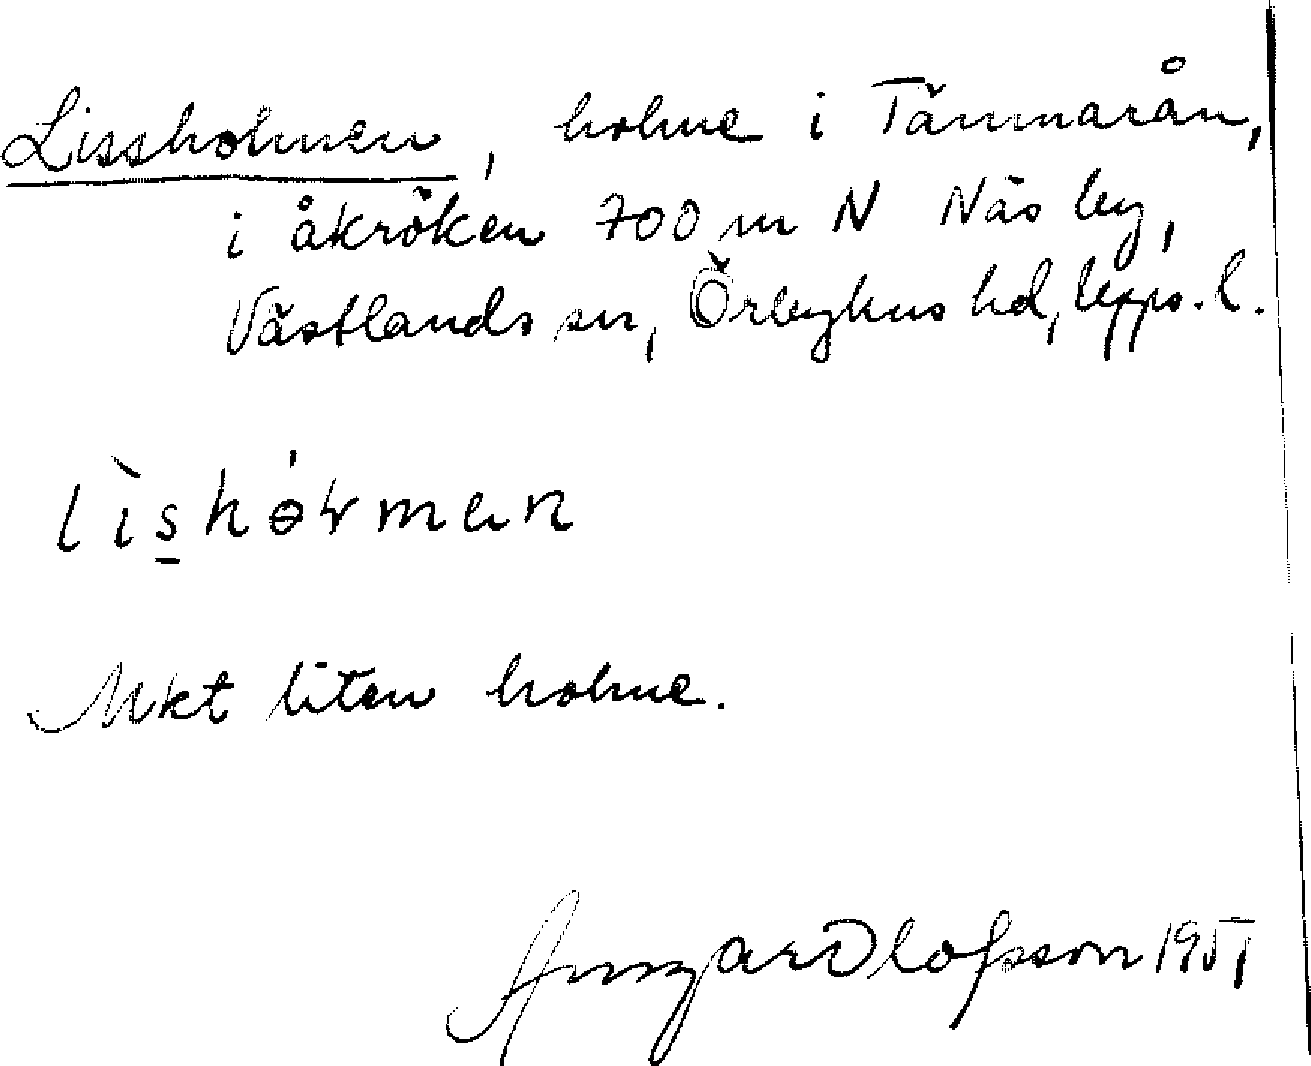 Lissholmen, holme i Tämnarån,
i åkröken 700 m N Näs by,
Västlands sn, Örbyhus hd, Upps. l.
lìs̲hɵ́rmen
Mkt liten holme.
Ansgar Olofsson 1951